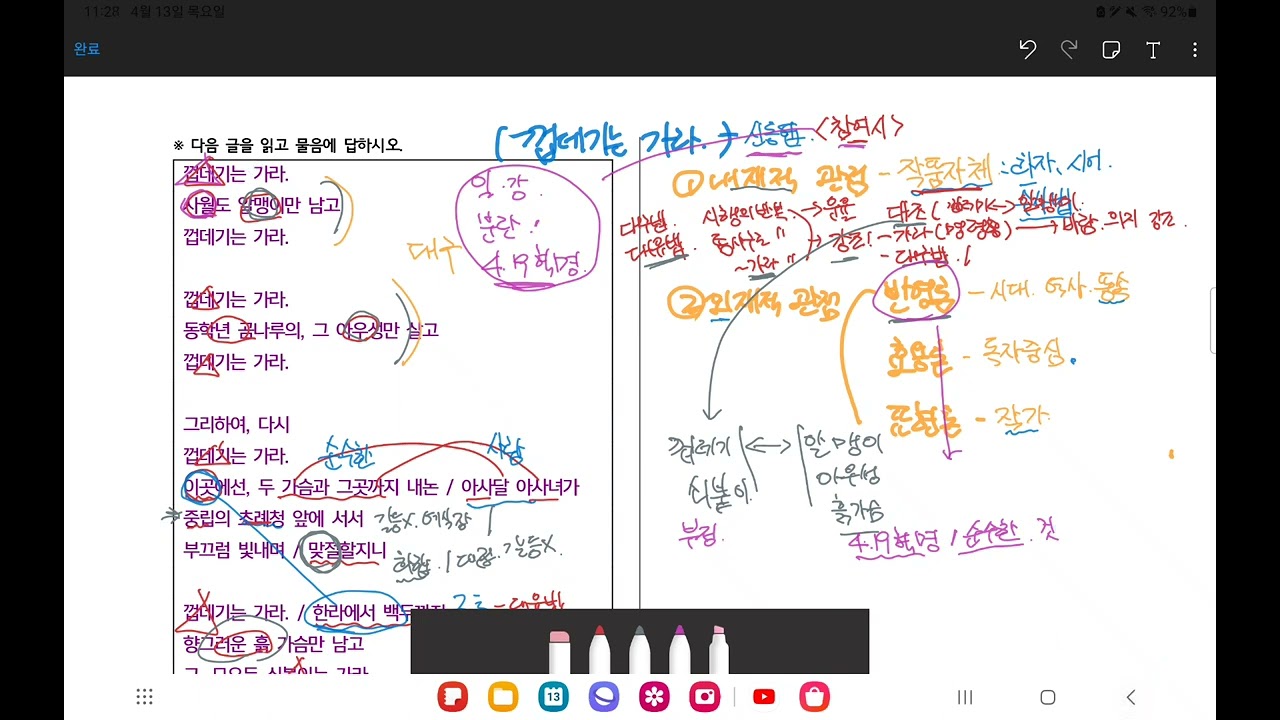 11:28 4월 13일 목요일
92%
완료
T
※ 다음 글을 읽고 물음에 답하시오.
껍데기는 가라.
사월도 알맹이만 남고
껍데기는 가라.
껍데기는 가라.
동학년 곰나루의, 그 아우성만 살고
껍데기는 가라.
그리하여, 다시
껍데기는 가라.
이곳에선, 두 가슴과 그곳까지 내논 / 아사달 아사녀가
중립의 초례청 앞에 서서
부끄럼 빛내며 / 맞절할지니
껍데기는 가라. / 한라에서 백두까지
향그러운 흙 가슴만 남고
그, 모오든 쇠붙이는 가라.
일.강.
분단
4.19혁명.
대구
순수한
사랑
갈등X. 예식장
화합 / 대립. 갈등X.
(껍데기는 가라.) 신동엽 <참여시>
① 내재적 관점 - 작품자체 : 화자, 시어.
대구법.
대유법
시행의 반복
~가라 "
→ 운율
→ 강조!
대조(
- 가라 (명령형) → 바람. 의지 강조.
- 대구법
② 외재적 관점
반영론 - 시대. 역사. 동속
효용론 - 독자중심.
표현론 - 작가
껍데기 <-> 알맹이
쇠붙이
아우성
흙가슴
부정.
4.19혁명 / 순수한 것
13